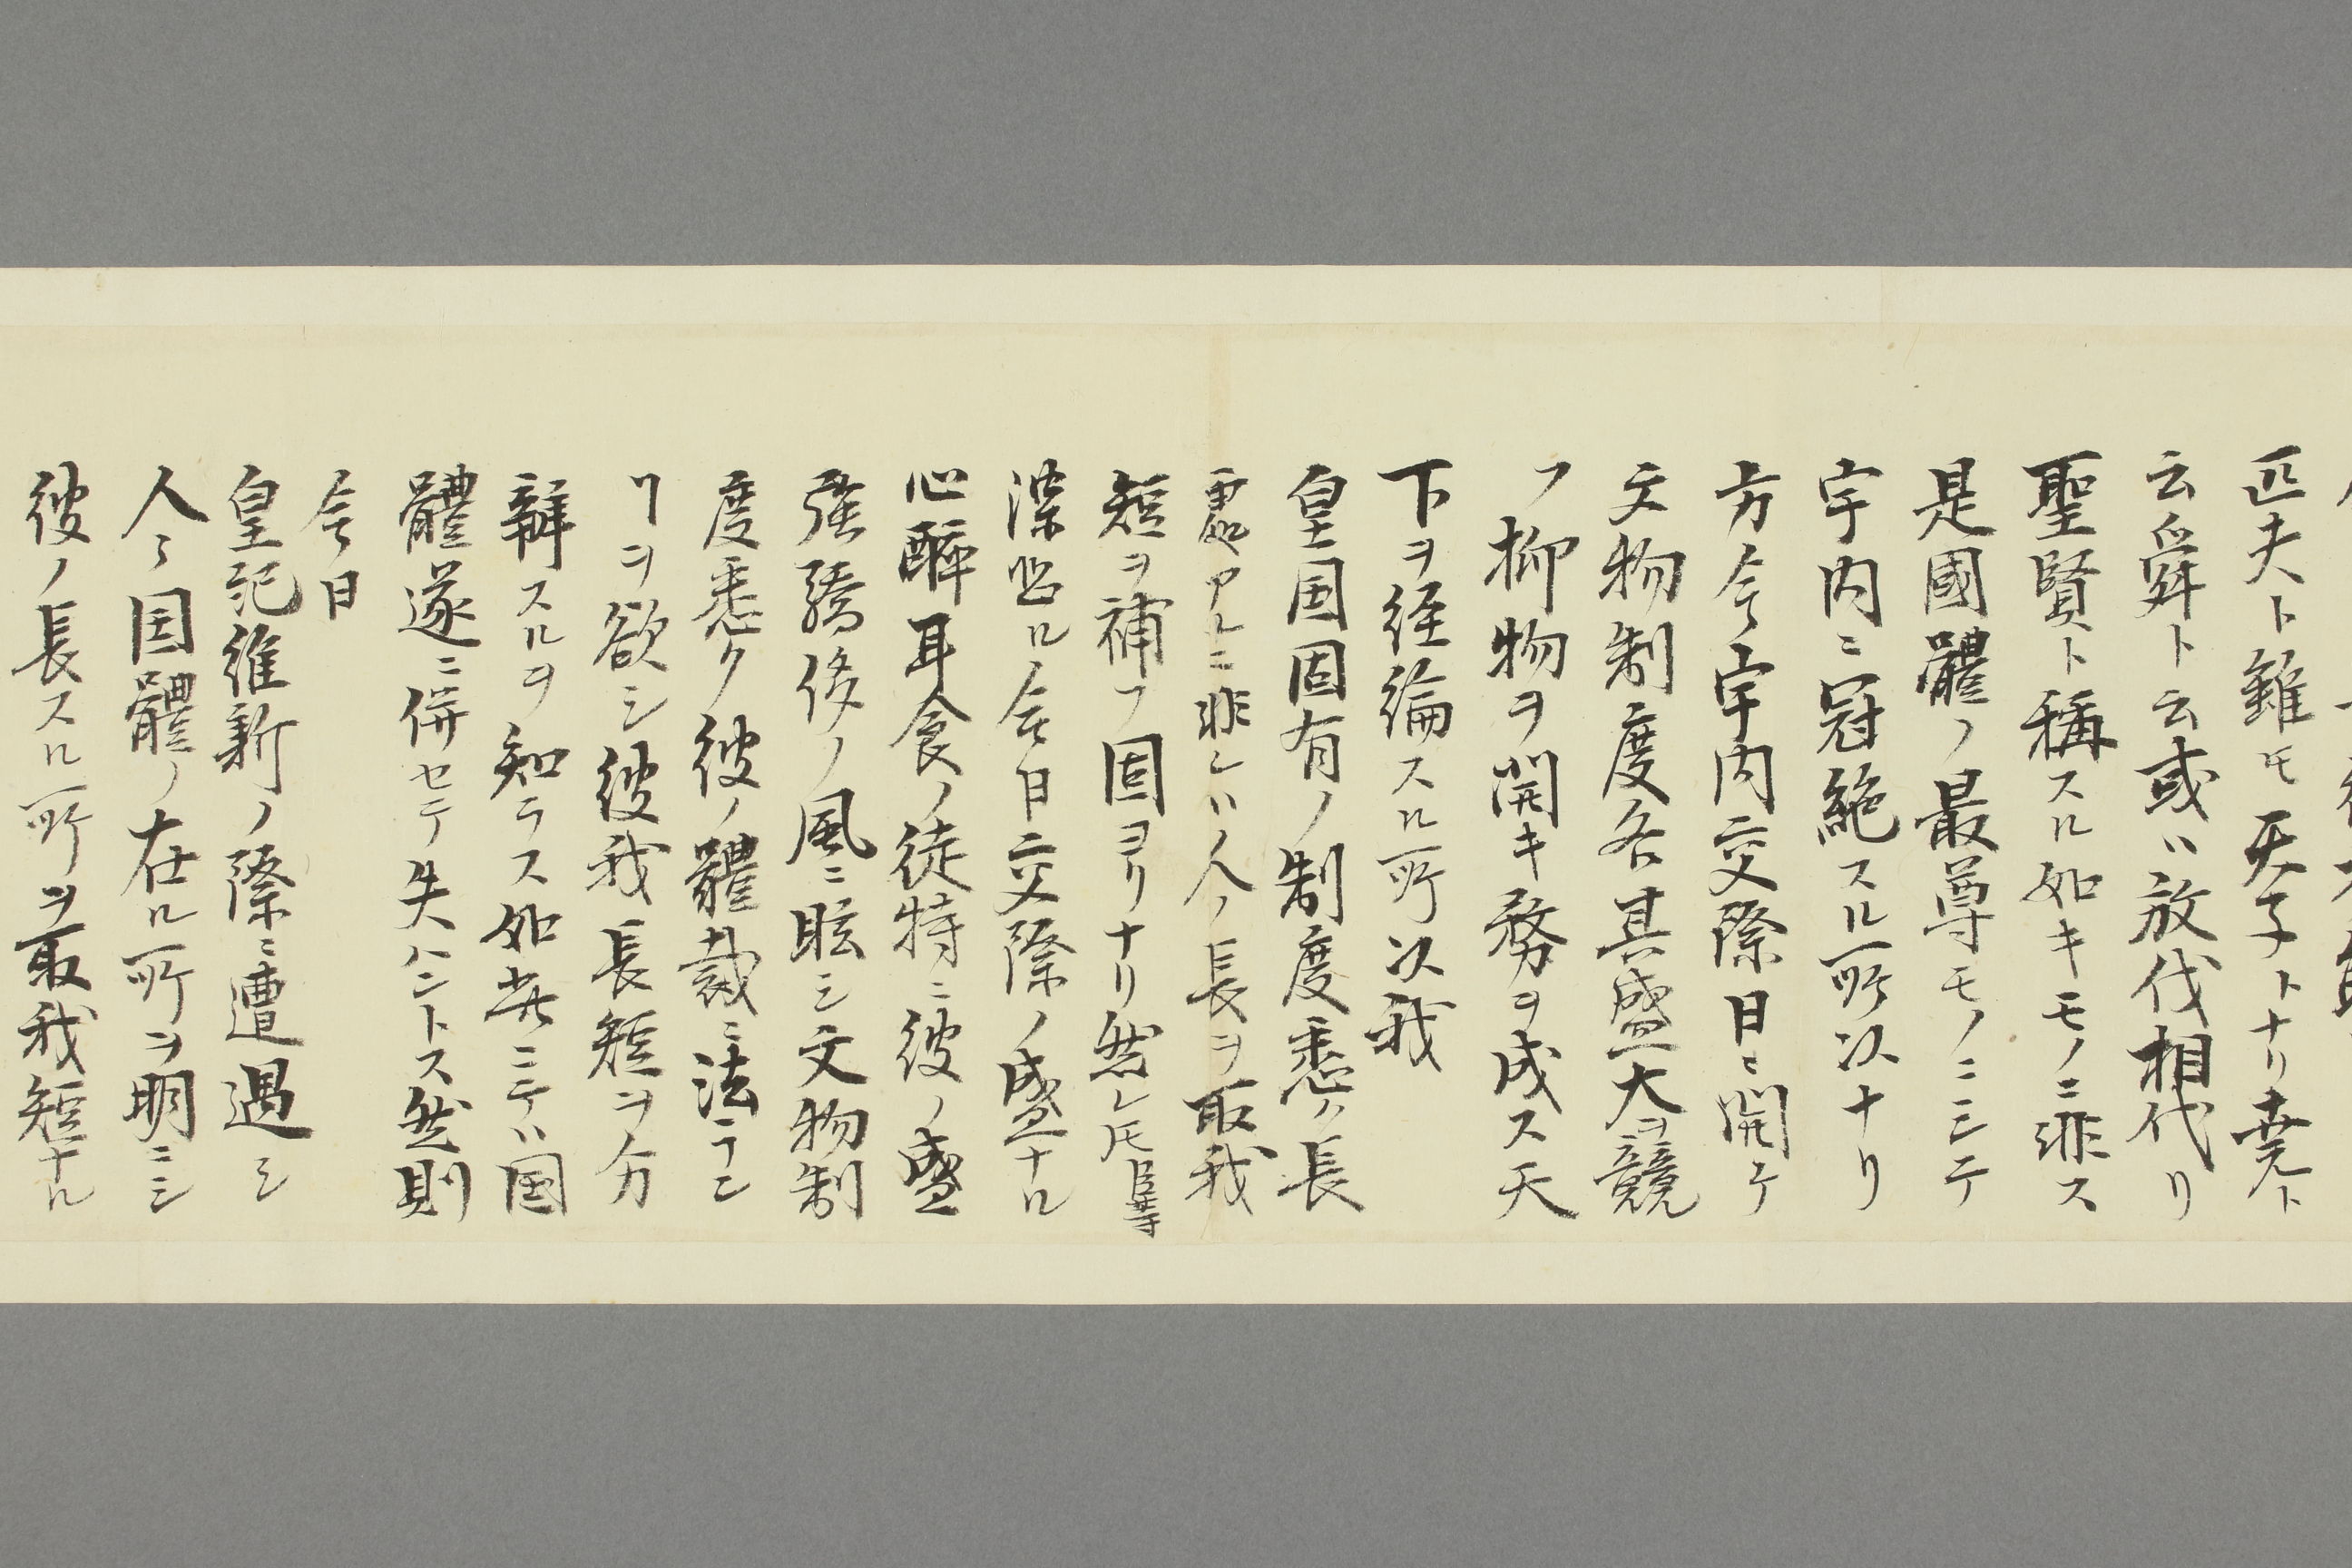 匹夫ト雖モ天子トナリ堯ト
云舜ト云或ハ放伐相代リ
聖賢ト稱スル如キモノニ非ス
是國體ノ最尊モノニシテ
宇内ニ冠絶スル所以ナリ
方今宇内交際日ニ開ケ
文物制度各其盛大ヲ競
フ抑物ヲ開キ務ヲ成ス天
下ヲ経綸スル所以我
皇国固有ノ制度悉ク長
處アルニ非レハ人ノ長ヲ取我
短ヲ補フ固ヨリナリ然レ𪜈
深ル今日交際ノ盛ナル
心酔耳食ノ徒特ニ彼ノ盛
強驕侈ノ風ニ眩シ文物制
度悉ク彼ノ體裁ニ法ラン
ヿヲ欲シ彼我長短ヲ分
辨スルヲ知ラス如此ニテハ国
體遂ニ併セテ失ハントス然則
今日
皇紀維新ノ際ニ遭遇シ
人々国體ノ在ル所ヲ明ニシ
彼ノ長スル所ヲ取我短ナル